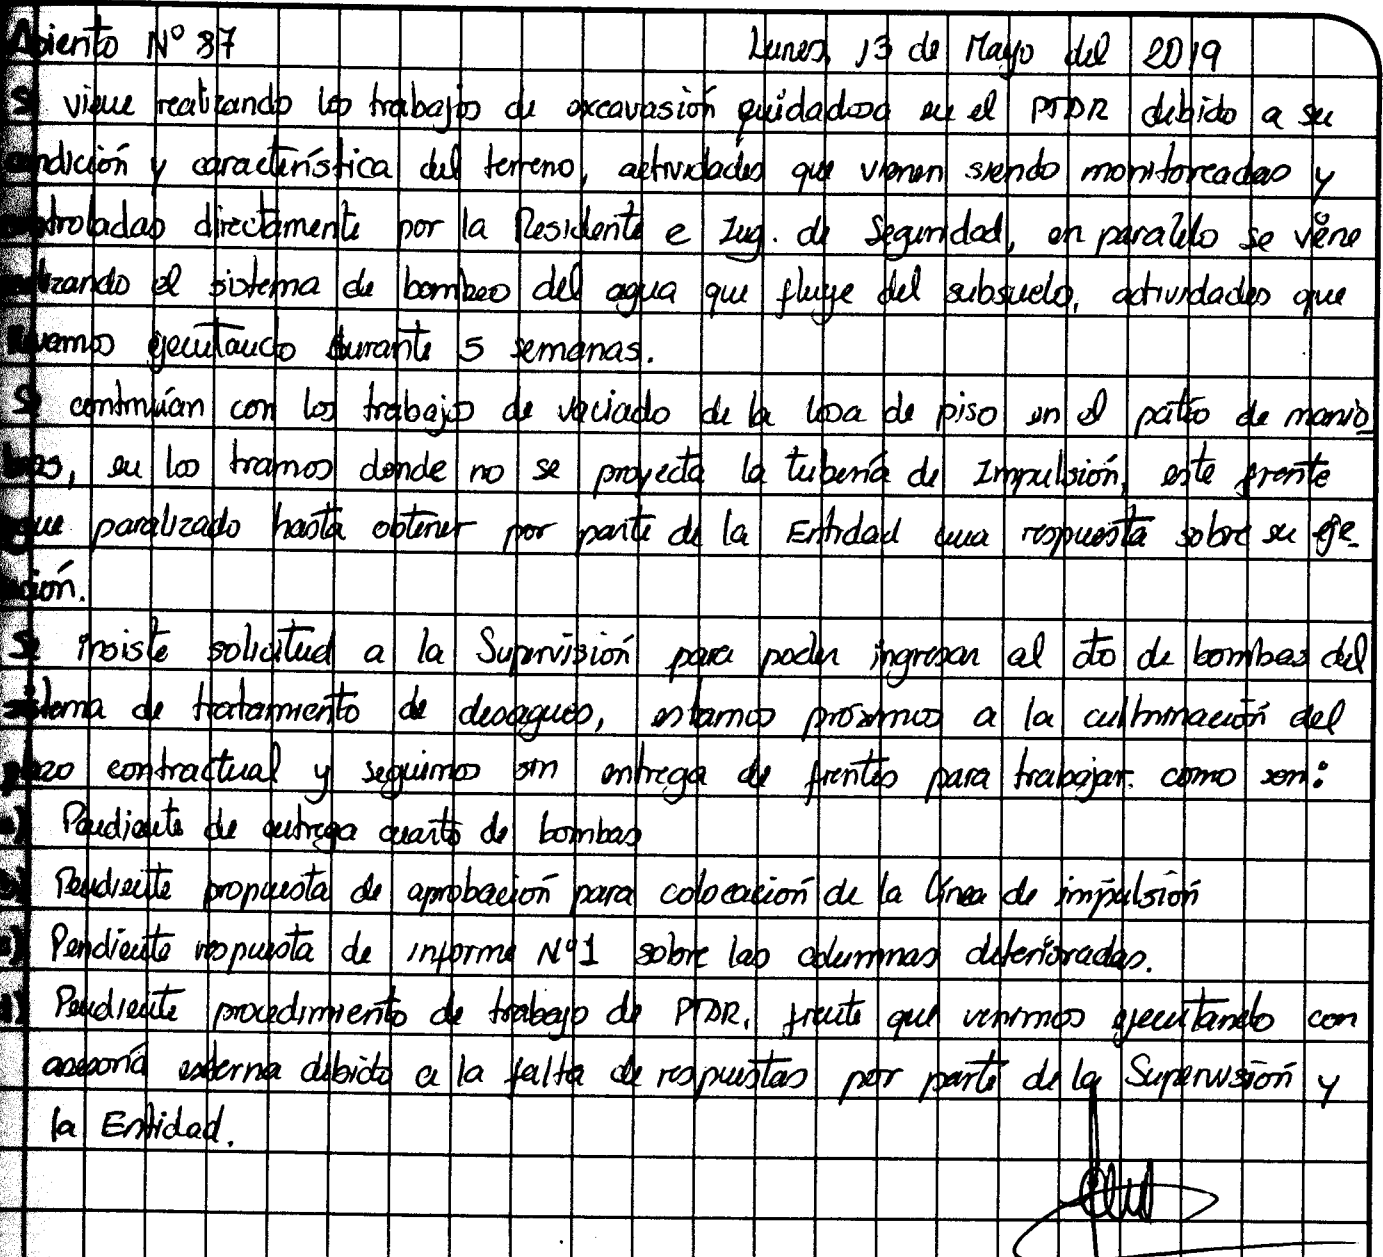 Asiento N° 87 Lunes, 13 de Mayo del 2019
Se viene realizando los trabajos de excavasión quidadosa en el PTDR debido a su
condición y característica del terreno, actividades que vienen siendo monitoreadas y
controladas directamente por la Residente e Ing. de Seguridad, en paralelo se viene
realizando el sistema de bombeo del agua que fluye del subsuelo, actividades que
llevamos ejecutando durante 5 semanas.
Se continúan con los trabajos de vaciado de la losa de piso en el patio de manio_
bras, en los tramos donde no se proyecta la tubería de Impulsión, este frente
sigue paralizado hasta obtener por parte de la Entidad una respuesta sobre su eje_
cución.
Se insiste solicitud a la Supervisión para poder ingresar al cto de bombas del
sistema de tratamiento de desagues, estamos proximos a la culminación del
plazo contractual y seguimos sin entrega de frentes para trabajar. como son:
a) Pendiente de entrega cuarto de bombas
b) Pendiente propuesta de aprobación para colocación de la línea de impulsión
c) Pendiente respuesta de informe N°1 sobre las columnas deterioradas.
d) Pendiente procedimiento de trabajo de PTDR, frente que venimos ejecutando con
asesoría externa debido a la falta de respuestas por parte de la Supervisión y
la Entidad.